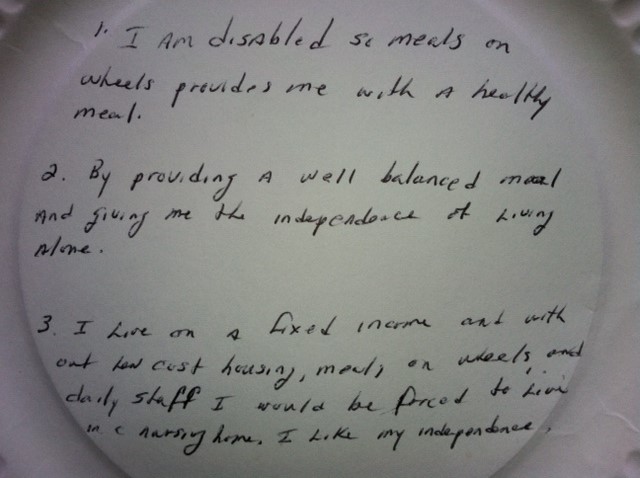 1. I Am disabled so meals on
wheels provides me with A healthy
meal.
2. By providing A well balanced meal
And giving me the independence of Living
Alone.
3. I Live on A fixed income and with
out low cost housing, meals on wheels and
daily staff I would be forced to Live
in a nursing home. I Like my independence.